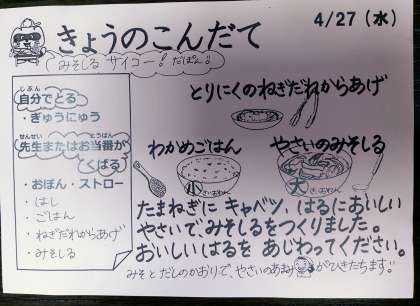 きょうのこんだて
4/27(水)
みそしるサイコー!だぽん!!
じぶん
自分でとる
・ぎゅうにゅう
せんせい とうばん
先生またはお当番が
くばる
・おぼん・ストロー
・はし
・ごはん
・ねぎだれからあげ
・みそしる
とりにくのねぎだれからあげ
わかめごはん
やさいのみそしる
小
大
たまねぎにキャベツ、はるにおいしい
やさいでみそしるをつくりました。
おいしいはるをあじわってください。
みそとだしのかおりで、やさいのあまみがひきたちます!!